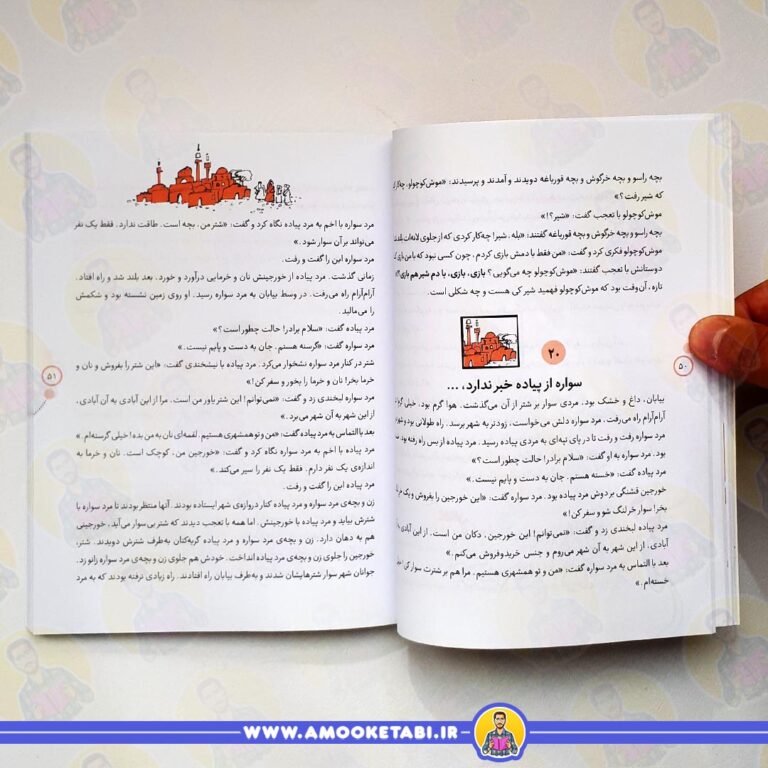 بچه راسو و بچه خرگوش و بچه قورباغه دویدند و آمدند و پرسیدند: «موش‌کوچولو، چه‌کار
که شیر رفت؟»
موش‌کوچولو با تعجب گفت: «شیر؟!»
بچه راسو و بچه خرگوش و بچه قورباغه گفتند: «بله، شیر! چه‌کار کردی که از جلوی لانه‌ات بلند شد
موش‌کوچولو فکری کرد و گفت: «من فقط با دمش بازی کردم. چون کسی نبود که با من بازی
دوستانش با تعجب گفتند: «موش‌کوچولو چه می‌گویی؟ بازی، بازی، با دم شیر هم بازی؟!
تازه، آن‌وقت بود که موش‌کوچولو فهمید شیر کی هست و چه شکلی است.
۲۰
سواره از پیاده خبر ندارد، ...
بیابان، داغ و خشک بود. مردی سوار بر شتر از آن می‌گذشت. هوا گرم بود. خیلی
آرام‌آرام راه می‌رفت. مرد سواره دلش می‌خواست، زودتر به شهر برسد. راه طولانی بود و
مرد سواره رفت و رفت تا در پای تپه‌ای به مردی پیاده رسید. مرد پیاده از بس راه رفته بود،
بود. مرد سواره به او گفت: «سلام برادر! حالت چطور است؟»
مرد پیاده گفت: «خسته هستم. جان به دست و پایم نیست.»
خورجین قشنگی بر دوش مرد پیاده بود. مرد سواره گفت: «این خورجین را بفروش و یک
بخر! سوار خر لنگ شو و سفر کن!»
مرد پیاده لبخندی زد و گفت: «نمی‌توانم! این خورجین، دکان من است. از این آبادی
آبادی، از این شهر به آن شهر می‌روم و جنس خریدوفروش می‌کنم.»
بعد با التماس به مرد سواره گفت: «من و تو همشهری هستیم. مرا هم بر شترت سوار کن!
خسته‌ام.»
۵۰
مرد سواره با اخم به مرد پیاده نگاه کرد و گفت: «شتر من، بچه است. طاقت ندارد. فقط یک نفر
می‌تواند بر آن سوار شود.»
مرد سواره این را گفت و رفت.
زمانی گذشت. مرد پیاده از خورجینش نان و خرمایی درآورد و خورد. بعد بلند شد و راه افتاد.
آرام‌آرام راه می‌رفت. در وسط بیابان به مرد سواره رسید. او روی زمین نشسته بود و شکمش
را می‌مالید.
مرد پیاده گفت: «سلام برادر! حالت چطور است؟»
مرد سواره گفت: «گرسنه هستم. جان به دست و پایم نیست.»
شتر در کنار مرد سواره نشخوار می‌کرد. مرد پیاده با نیشخندی گفت: «این شتر را بفروش و نان و
خرما بخر! نان و خرما را بخور و سفر کن!»
مرد سواره لبخندی زد و گفت: «نمی‌توانم! این شتر یاور من است. مرا از این آبادی به آن آبادی،
از این شهر به آن شهر می‌برد.»
بعد با التماس به مرد پیاده گفت: «من و تو همشهری هستیم. لقمه‌ای نان به من بده! خیلی گرسنه‌ام.»
مرد پیاده با اخم به مرد سواره نگاه کرد و گفت: «خورجین من، کوچک است. نان و خرما به
اندازه‌ی یک نفر دارم. فقط یک نفر را سیر می‌کند.»
مرد پیاده این را گفت و رفت.
زن و بچه‌ی مرد سواره و مرد پیاده کنار دروازه‌ی شهر ایستاده بودند. آنها منتظر بودند تا مرد سواره با
شترش بیاید و مرد پیاده با خورجینش. اما همه با تعجب دیدند که شتر بی‌سوار می‌آید، خورجینی
هم به دهان دارد. زن و بچه‌ی مرد سواره و مرد پیاده گریه‌کنان به‌طرف شترش دویدند. شتر،
خورجین را جلوی زن و بچه‌ی مرد پیاده انداخت. خودش هم جلوی زن و بچه‌ی مرد سواره زانو زد.
جوانان شهر سوار شترهایشان شدند و به‌طرف بیابان راه افتادند. راه زیادی نرفته بودند که به مرد
۵۱
WWW.AMOOKETABI.IR